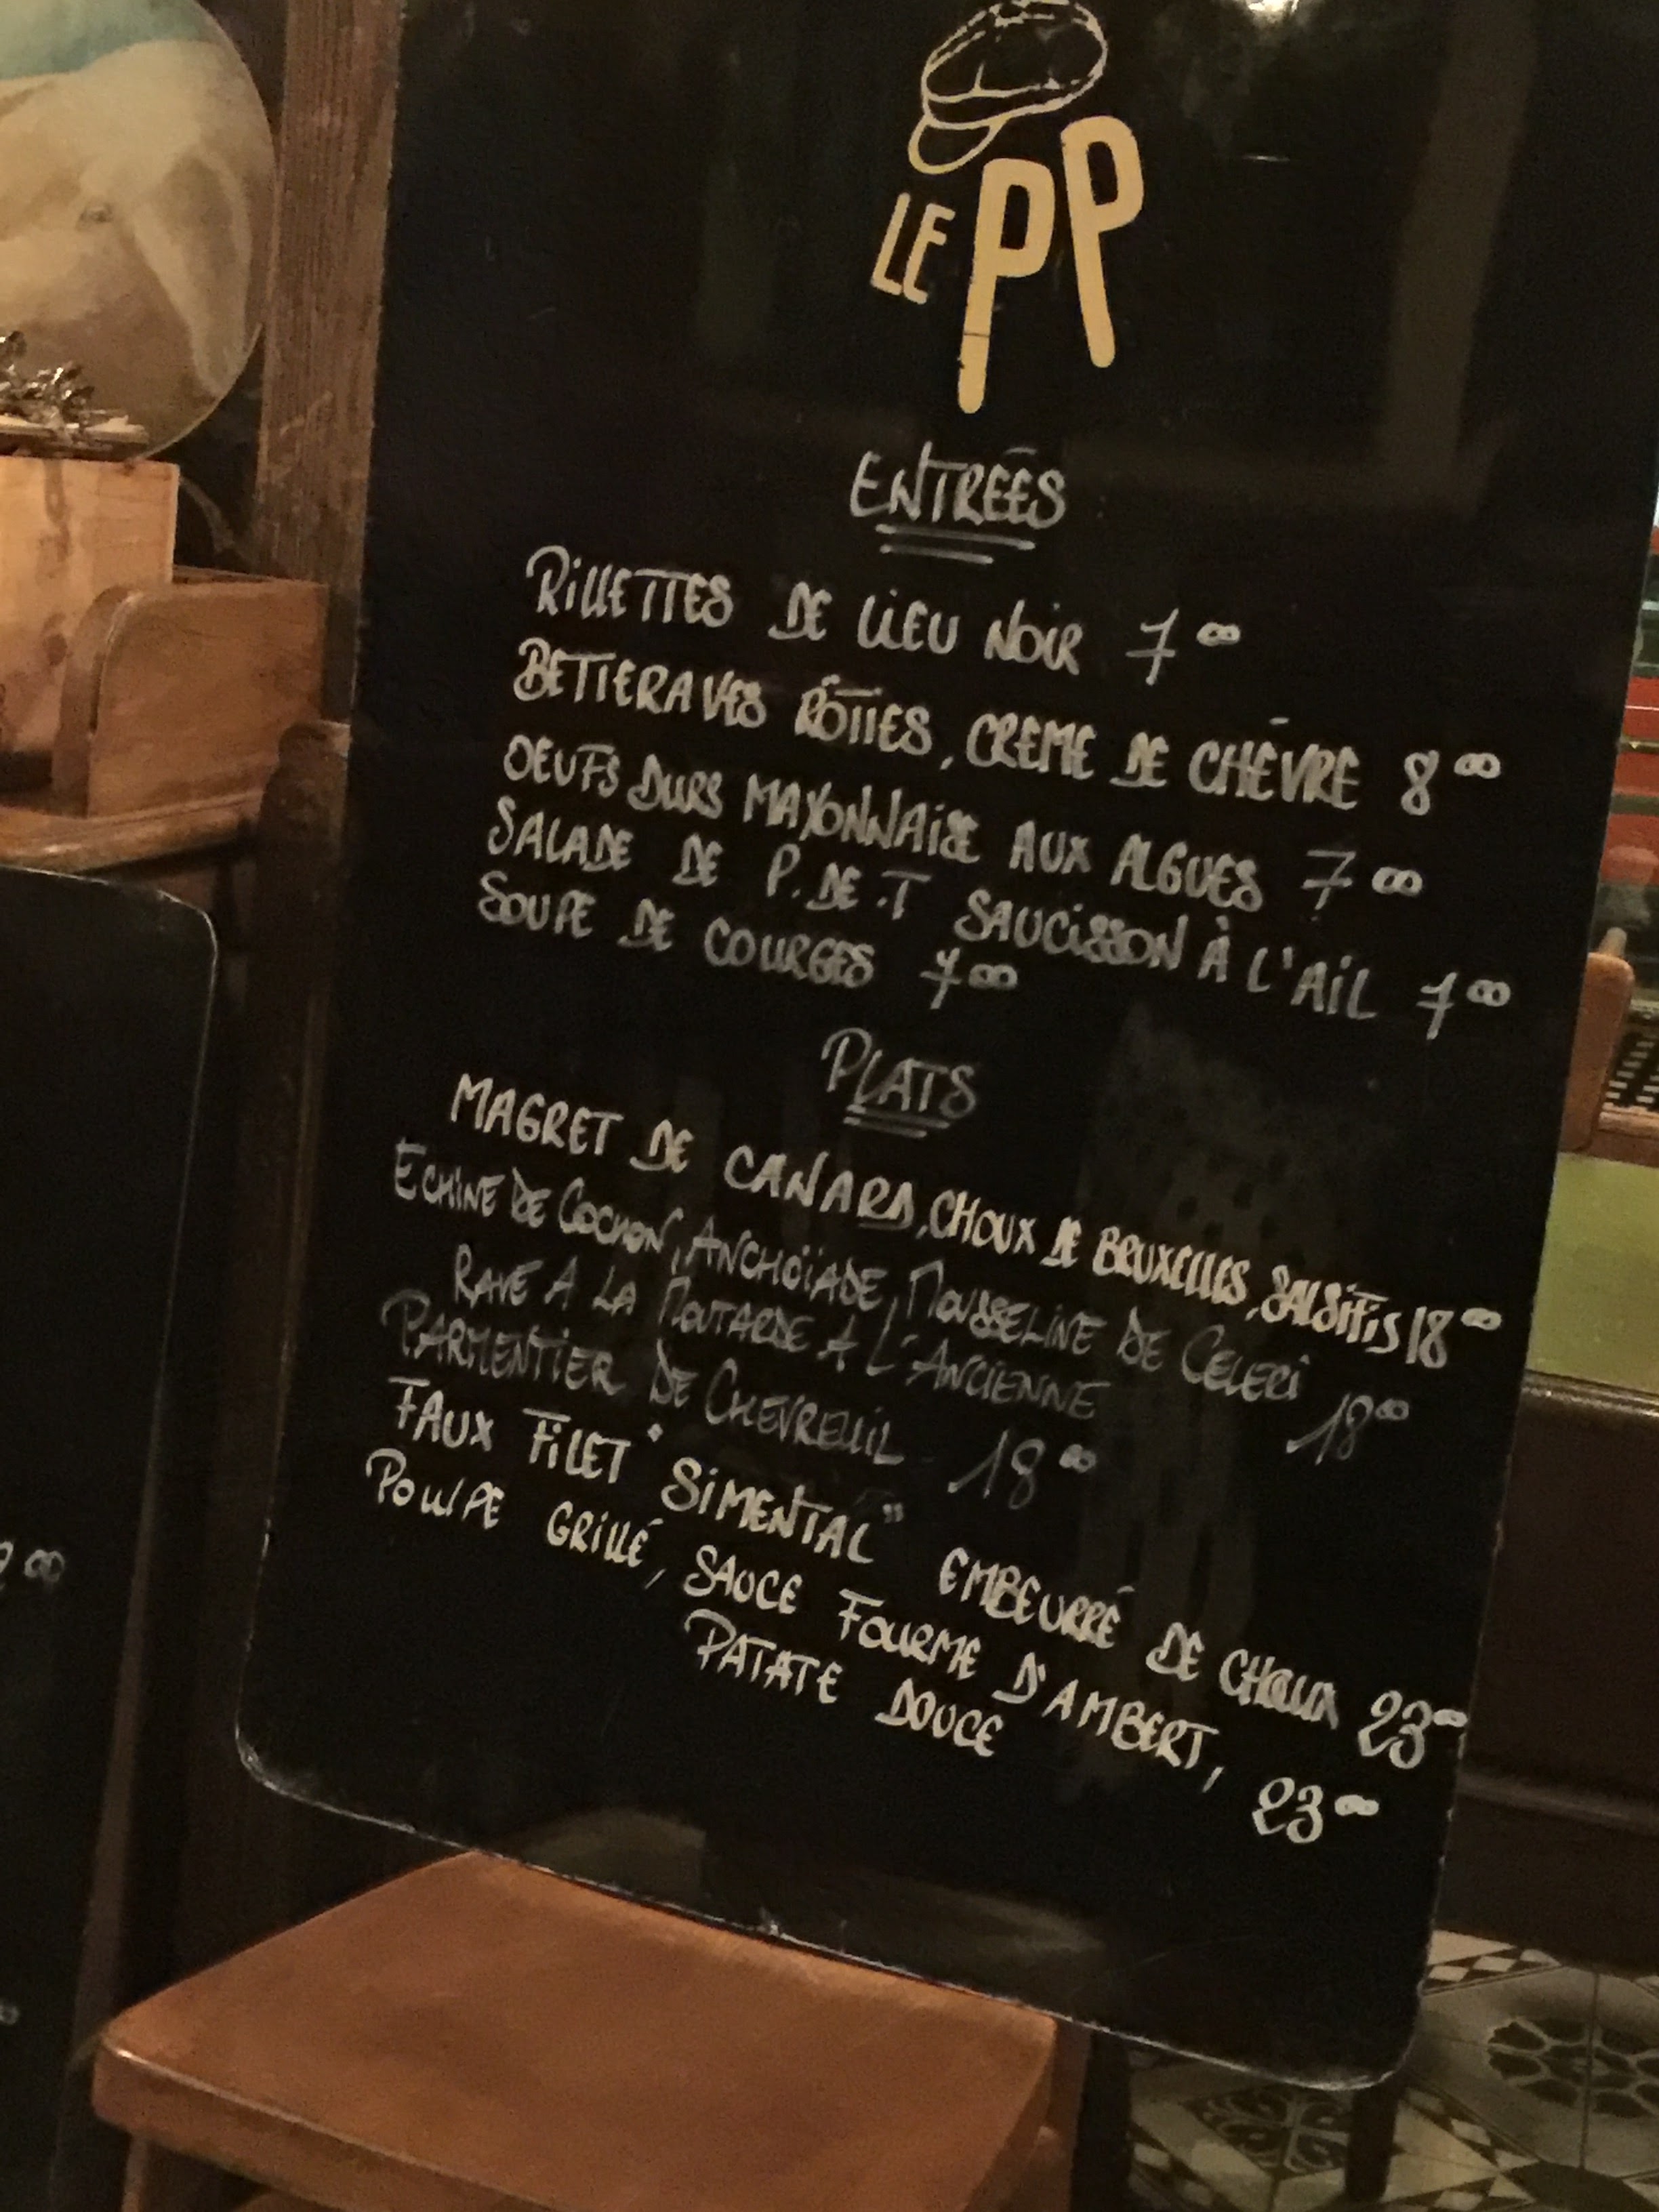 LE PP
ENTRÉES
RILLETTES DE LIEU NOIR 7°°
BETTERAVES RÔTIES, CREME DE CHÈVRE 8°°
OEUFS DURS MAYONNAISE AUX ALGUES 7°°
SALADE DE P.DE.T SAUCISSON À L'AIL 7°°
SOUPE DE COURGES 7°°
PLATS
MAGRET DE CANARD, CHOUX DE BRUXELLES, SALSIFIS 18°°
ECHINE DE COCHON, ANCHOÏADE, MOUSSELINE DE CELERI
RAVE A LA MOUTARDE A L'ANCIENNE 18°°
PARMENTIER DE CHEVREUIL 18°°
FAUX FILET "SIMENTAL" EMBEURRÉ DE CHOUX 23°°
POULPE GRILLÉ, SAUCE FOURME D'AMBERT,
PATATE DOUCE 23°°